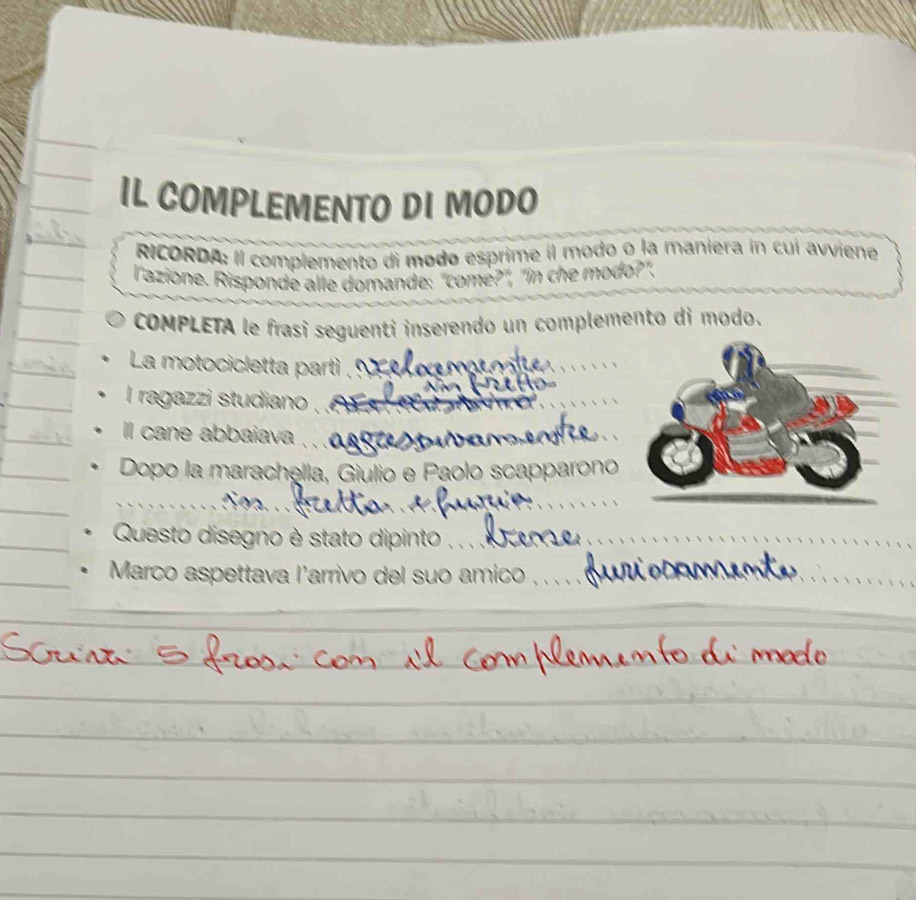 IL COMPLEMENTO DI MODO
RICORDA: Il complemento di modo esprime il modo o la maniera in cui avviene
l'azione. Risponde alle domande: "come?", "in che modo?".
COMPLETA le frasi seguenti inserendo un complemento di modo.
• La motocicletta partì velocemente
in fretta
• I ragazzi studiano
• Il cane abbaiava aggressivamente
• Dopo la marachella, Giulio e Paolo scapparono
in fretta e furia
• Questo disegno è stato dipinto bene
• Marco aspettava l'arrivo del suo amico furiosamente
Scrivi 5 frasi con il complemento di modo